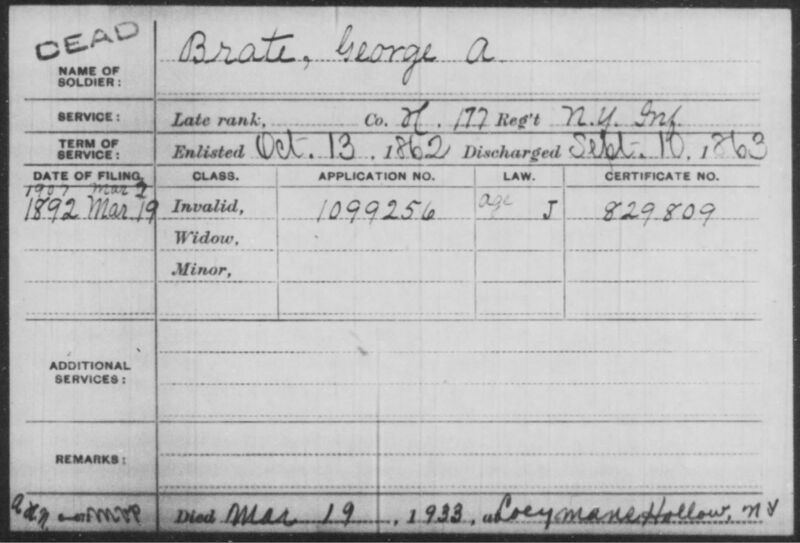 DEAD
Brate, George A.
NAME OF SOLDIER:
SERVICE: Late rank, Co. H. 177 Reg't N.Y. Inf
TERM OF SERVICE: Enlisted Oct. 13, 1862 Discharged Sept. 10, 1863
DATE OF FILING. CLASS. APPLICATION NO. LAW. CERTIFICATE NO.
1907 Mar 2
1892 Mar 19 Invalid, 1099256 age J 829809
Widow,
Minor,
ADDITIONAL SERVICES:
REMARKS:
Died Mar 19, 1933, at Coeymans Hollow, NY